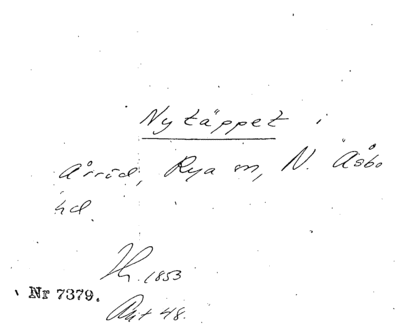 Nytäppet i
Årröd, Rya sn, N. Åsbo
hd.
1853
Nr 7379.
Akt 48.